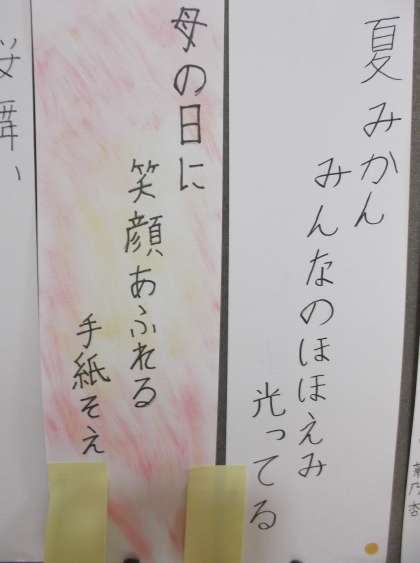 夏みかん
みんなのほほえみ
光ってる
母の日に
笑顔あふれる
手紙そえ